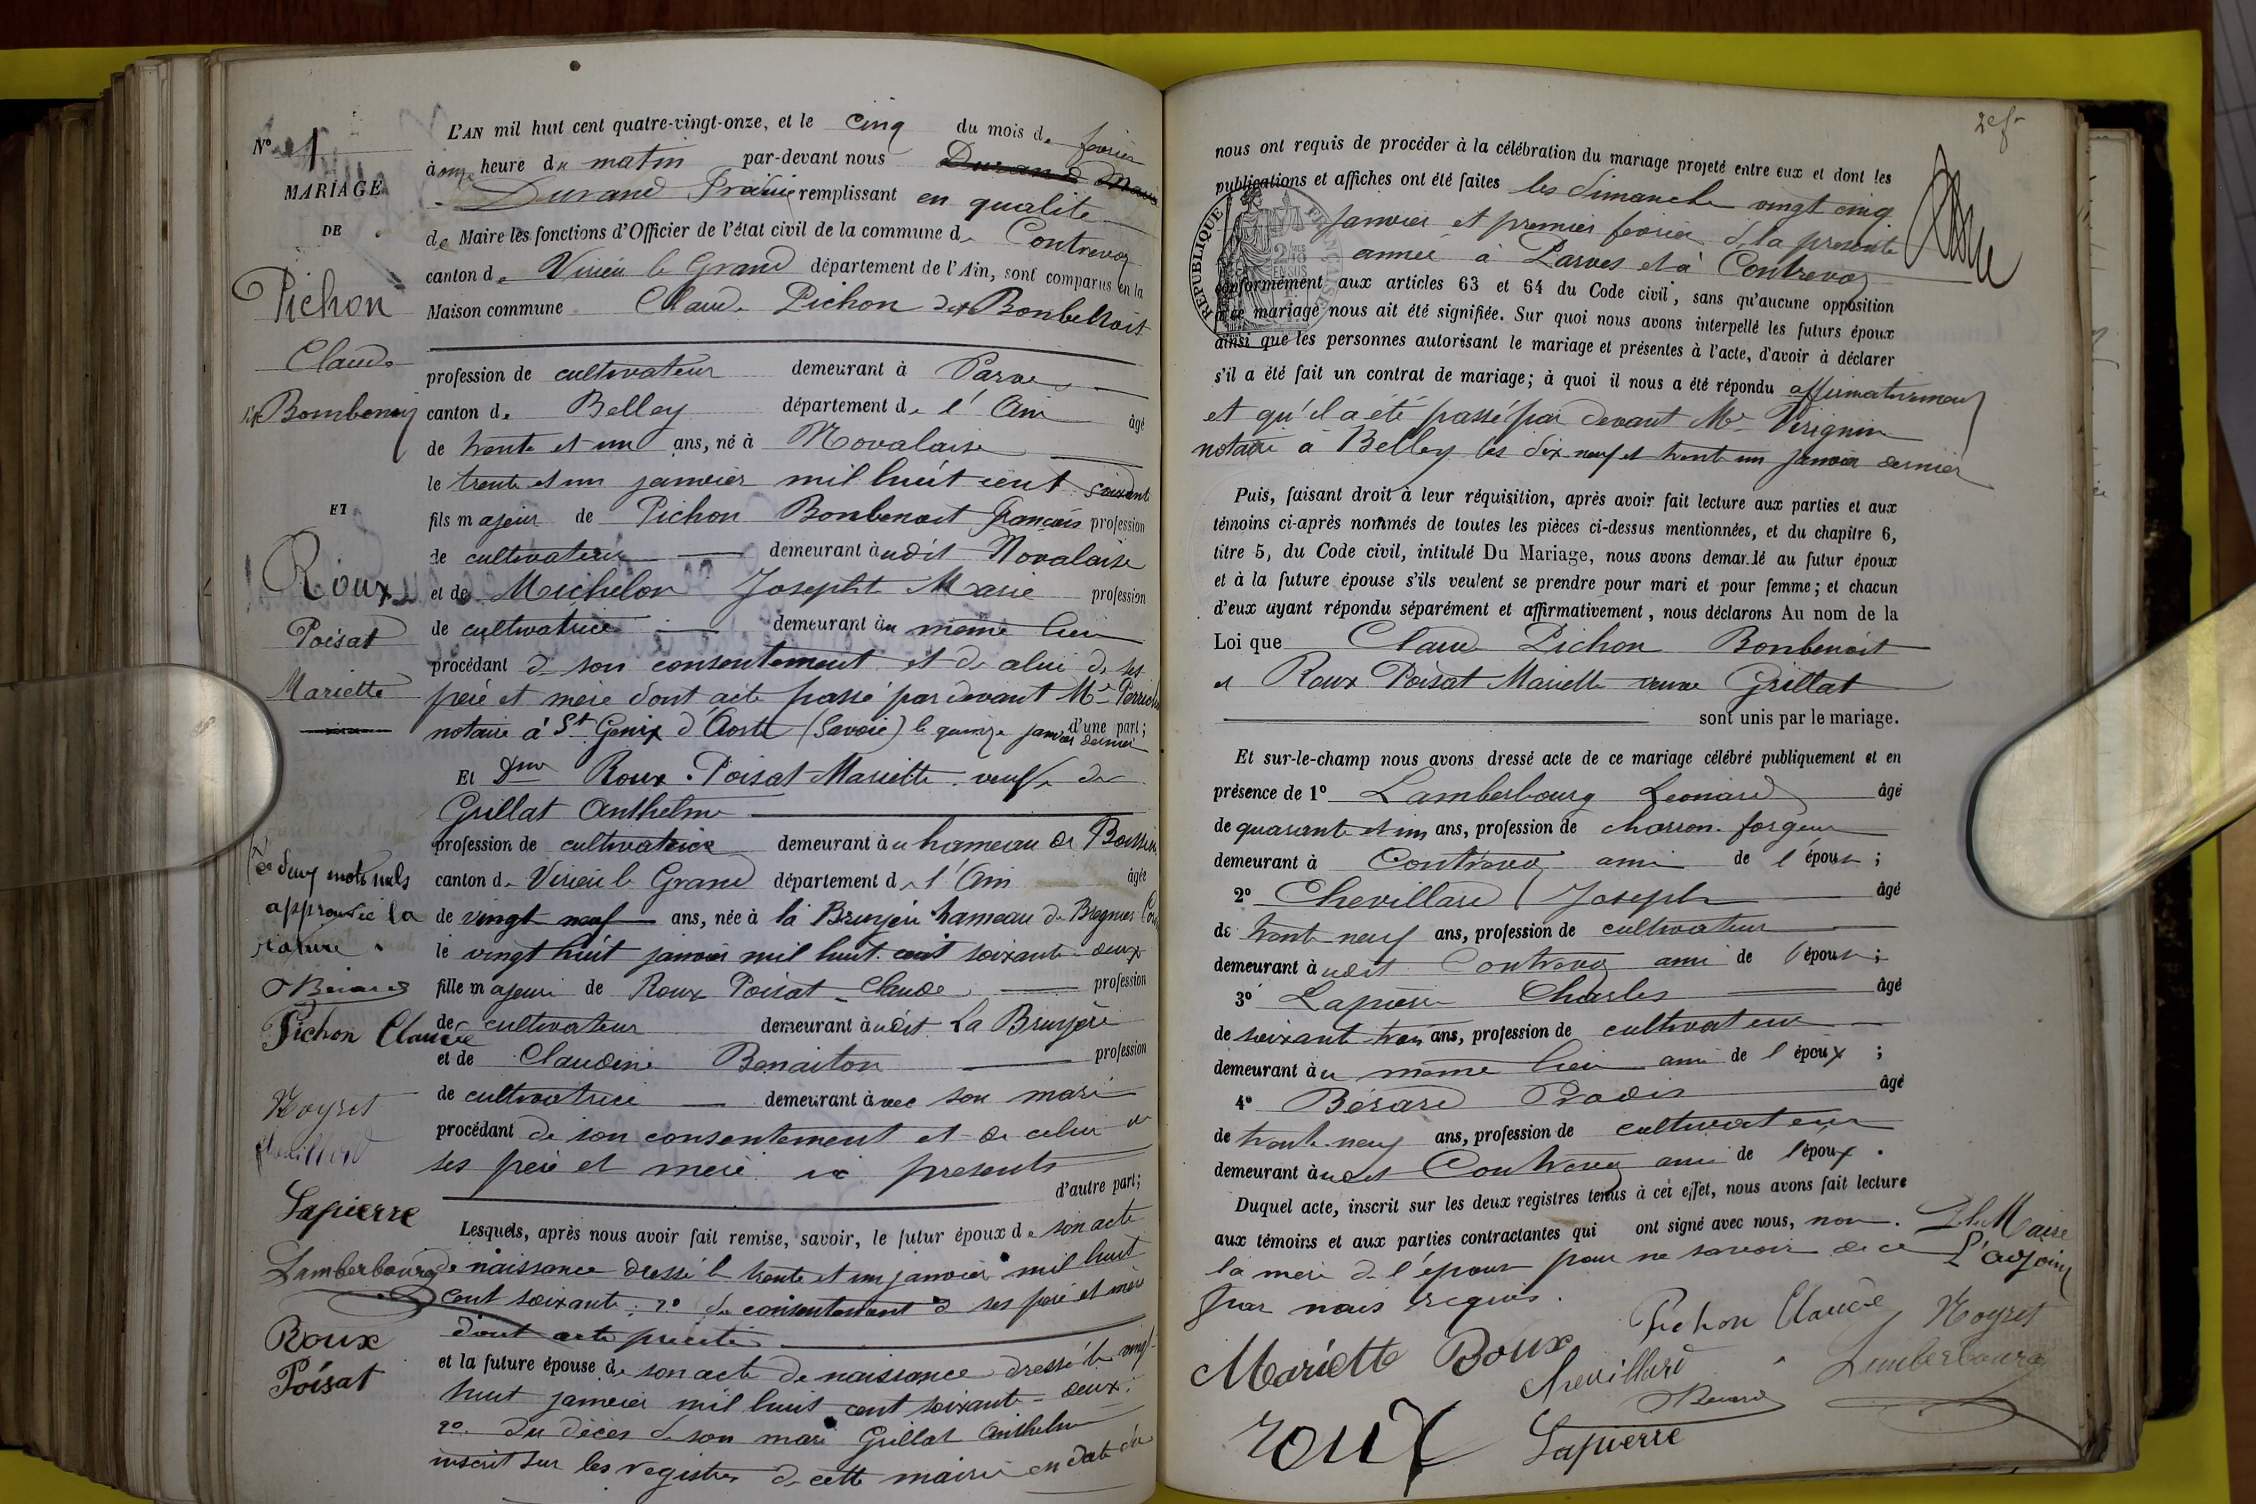 N° 1
MARIAGE
DE
Pichon
Claude
dit Bombenoit
ET
Roux
Poisat
Mariette
deux mots nuls
approuvé la
rature
Bérard
Pichon Claude
Noyret
Chevillard
Lapierre
Lamberbourg
Roux
Poisat
L'AN mil huit cent quatre-vingt-onze, et le cinq du mois de février
à onze heure du matin par-devant nous Durand Maire
Durand remplissant en qualité
de Maire les fonctions d'Officier de l'état civil de la commune de Contrevoz
canton de Virieu le Grand département de l'Ain, sont comparus en la
Maison commune Claude Pichon dit Bonbenoit
profession de cultivateur demeurant à Parves
canton de Belley département de l'Ain âgé
de trente et un ans, né à Novalaise
le trente et un janvier mil huit cent soixante
fils majeur de Pichon Bonbenoit François profession
de cultivateur demeurant àudit Novalaise
et de Michelon Josephte Marie profession
de cultivatrice demeurant àu même lieu
procédant de son consentement et de celui de ses
père et mère dont acte passé par devant Me
notaire à St Genix d'Aoste (Savoie) le quinze janvier dernier d'une part;
Et Dme Roux Poisat Mariette veuve de
Grillat Anthelme
profession de cultivatrice demeurant àu hameau de
canton de Virieu le Grand département de l'Ain âgée
de vingt neuf ans, née à la Bruyère hameau de Brégnier Cor
le vingt huit janvier mil huit cent soixante deux
fille majeure de Roux Poisat Claude profession
de cultivateur demeurant àudit La Bruyère
et de Claudine Benaiton profession
de cultivatrice demeurant àvec son mari
procédant de son consentement et de celui de
ses père et mère ici présents
d'autre part;
Lesquels, après nous avoir fait remise, savoir, le futur époux de son acte
de naissance dressé le trente et un janvier mil huit
cent soixante; 2° du consentement de ses père et mère
dont acte précité
et la future épouse de son acte de naissance dressé le vingt
huit janvier mil huit cent soixante deux;
2° du décès de son mari Grillat Anthelme
inscrit sur les registres de cette mairie en date du
2e f.
nous ont requis de procéder à la célébration du mariage projeté entre eux et dont les
publications et affiches ont été faites les dimanche vingt cinq
janvier et premier février de la présente
année à Parves et à Contrevoz
conformément aux articles 63 et 64 du Code civil, sans qu'aucune opposition
à ce mariage nous ait été signifiée. Sur quoi nous avons interpellé les futurs époux
ainsi que les personnes autorisant le mariage et présentes à l'acte, d'avoir à déclarer
s'il a été fait un contrat de mariage; à quoi il nous a été répondu affirmativement
et qu'il a été passé par devant Me Virignin
notaire à Belley les dix neuf et trente un janvier dernier
RÉPUBLIQUE FRANÇAISE
Puis, faisant droit à leur réquisition, après avoir fait lecture aux parties et aux
témoins ci-après nommés de toutes les pièces ci-dessus mentionnées, et du chapitre 6,
titre 5, du Code civil, intitulé Du Mariage, nous avons demandé au futur époux
et à la future épouse s'ils veulent se prendre pour mari et pour femme; et chacun
d'eux ayant répondu séparément et affirmativement, nous déclarons Au nom de la
Loi que Claude Pichon Bonbenoit
et Roux Poisat Mariette veuve Grillat
sont unis par le mariage.
Et sur-le-champ nous avons dressé acte de ce mariage célébré publiquement et en
présence de 1° Lamberbourg Léonard âgé
de quarante et un ans, profession de charron forgeur
demeurant à Contrevoz ami de l'époux;
2° Chevillard Joseph âgé
de trente neuf ans, profession de cultivateur
demeurant àudit Contrevoz ami de l'époux;
3° Lapierre Charles âgé
de soixante trois ans, profession de cultivateur
demeurant àu même lieu ami de l'époux;
4° Bérard âgé
de trente neuf ans, profession de cultivateur
demeurant àudit Contrevoz ami de l'époux.
Duquel acte, inscrit sur les deux registres tenus à cet effet, nous avons fait lecture
aux témoins et aux parties contractantes qui ont signé avec nous, non
la mère de l'épouse pour ne savoir de ce
par nous requis.
P. le Maire
L'adjoint
Mariette Roux Pichon Claude Noyret
Chevillard Lamberbourg
Bérard
roux Lapierre